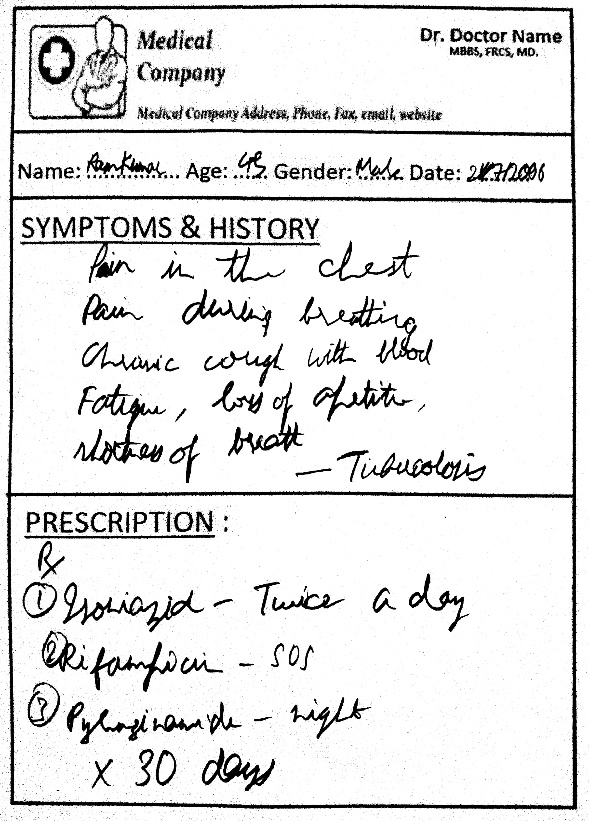 Medical
Company
Dr. Doctor Name
MBBS, FRCS, MD.
Medical Company Address, Phone, Fax, email, website
Name: Ram Kumar Age: 45 Gender: Male Date: /7/2006
SYMPTOMS & HISTORY
Pain in the chest
Pain during breathing
Chronic cough with blood
Fatigue, loss of apetite,
shotness of breath
— Tuburcolosis
PRESCRIPTION :
Rx
① Isoniazid - Twice a day
② Rifampicin - SOS
③ Pyhazinamide - night
x 30 days